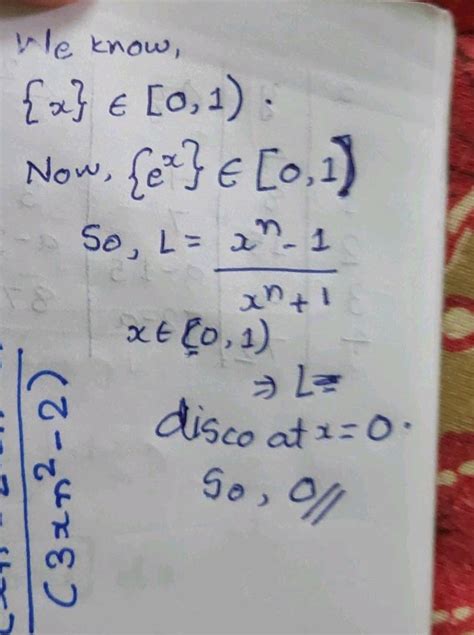 We know,
{x} ∈ [0,1) .
Now, {e^x} ∈ [0,1)
So, L = x^n - 1
x^n + 1
x ∈ [0,1)
⇒ L =
disco at x = 0 .
So, 0//
(3xn^2 - 2)